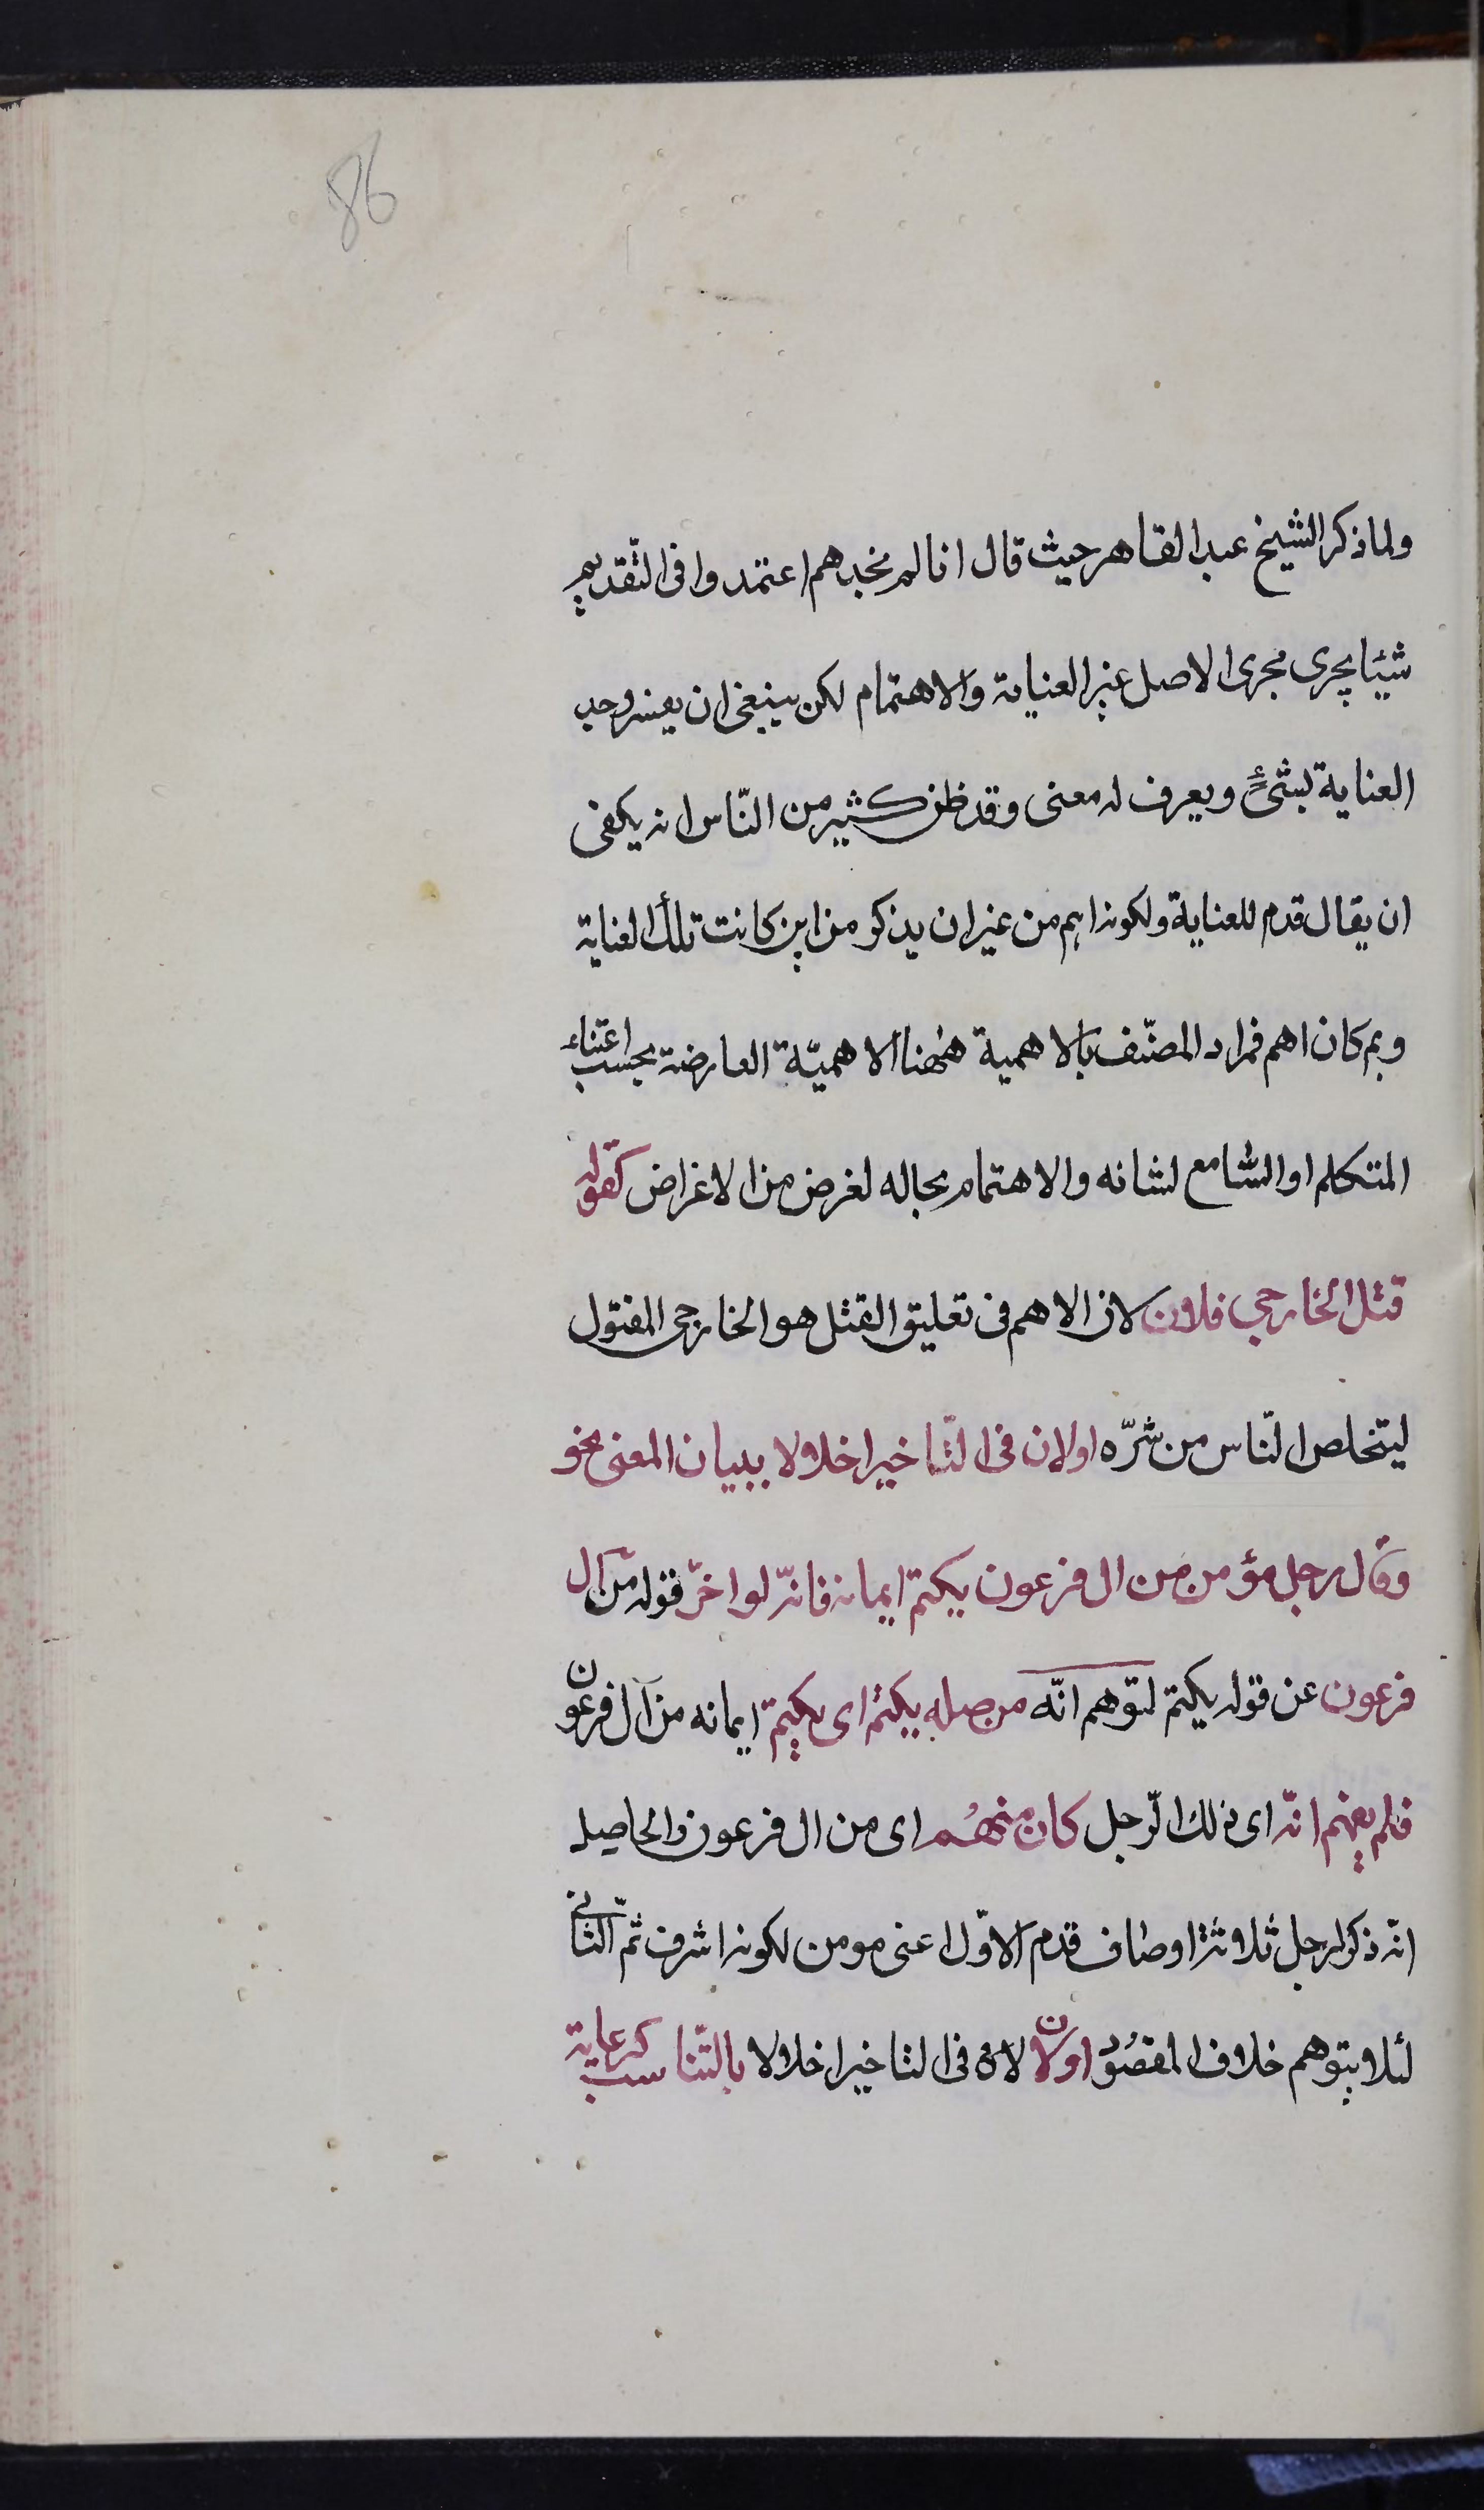 86
ولما ذكر الشيخ عبد القاهر حيث قال انا لم نجدهم اعتمدوا فى التقديم
شيئا يجرى مجرى الاصل غير العناية والاهتمام لكن ينبغى ان يفسر وجه
العناية بشئ ويعرف له معنى وقد ظن كثير من النّاس انه يكفى
ان يقال قدم للعناية ولكونه اهم من غير ان يذكر من اين كانت تلك العناية
وبم كان اهم فمراد المصنّف بالاهمية هٰهنا الاهميّة العارضة بحسب اعتناء
المتكلم او السّامع لشانه والاهتمام بحاله لغرض من الاغراض كقوله
قتل الخارجي فلان لان الاهم فى تعليق القتل هو الخارجى المقتول
ليتخلص النّاس من شرّه او لان فى التّاخير اخلالا ببيان المعنى نحو
وقال رجل مؤمن من ال فرعون يكتم ايمانه فانّه لو اخّر قوله من آل
فرعون عن قوله يكتم لتوهم انّه من صله يكتم اى يكتم ايمانه من آل فرعون
فلم يفهم انّه اى ذلك الرّجل كان منهُم اى من ال فرعون والحاصل
انّه ذكر لرجل ثلاثة اوصاف قدم الاوّل اعنى مومن لكونه اشرف ثمّ الثّانى
لئلا يتوهم خلاف المقصُود او لان لان فى التاخير اخلالا بالتّناسب كرعاية